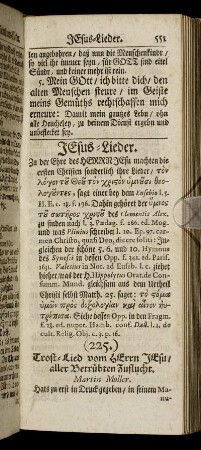 JEsus-Lieder. 551
len angebohren / daß nun die Menschenkinder /
so viel ihr immer seyn / für GOTT sind eitel
Sünde / und keiner mehr ist rein.
5. Mein GOtt / ich bitte dich / den
alten Menschen steure / im Geiste
meins Gemüths rechtschaffen mich
erneure: Damit mein gantzes Lebn / ohn
alle Heucheley / zu deinem Dienst ergebn und
unbeflecket sey.
JEsus-Lieder.
Zu der Ehre des HERRN JEsu machten die
ersten Christen sonderlich ihre Lieder / τὸν
λόγον τῦ Θεῦ τὸν χριςὸν ὑμνῦσι θεο-
λογῦντες sagt einer bey dem Eusebio l. 5.
H. E. c. 28. f. 196. Dahin gehöret der ὕμνος
τῦ σωτῆρος χριςῦ des Clementis Alex.
zu finden nach l. 3. Pædag. f. 266. ed. Mog.
und was Plinius schreibet l. 10. Ep. 97. car-
men Christo, quasi Deo, dicere solitos: In-
gleichen der schöne 5. 6. und 10. Hymnus
des Synesii in dessen Opp. f. 341. ed. Paris.
1631. Valesius in Not. ad Euseb. l. c. ziehet
hieher was der H. Hippolytus Orat. de Con-
summ. Mundi. gleichsam aus dem Urtheil
Christi selbst Matth. 25. saget: τὸ ςόμα
ὑμῶν πρὸς δοξολογίαν καὶ αἶνον ηυ-
τρέπισα. Siehe dessen Opp. in den Fragm.
f. 18. ed. nuper. Hamb. conf. Dall. l. 3. de
cult. Relig. Obj. c. 3. p. 16.
(225.)
Trost-Lied vom HErrn JEsu /
aller Betrübten Zuflucht.
Martin Moller.
Hats zu erst in Druck gegeben / in seinem Ma-
nu-